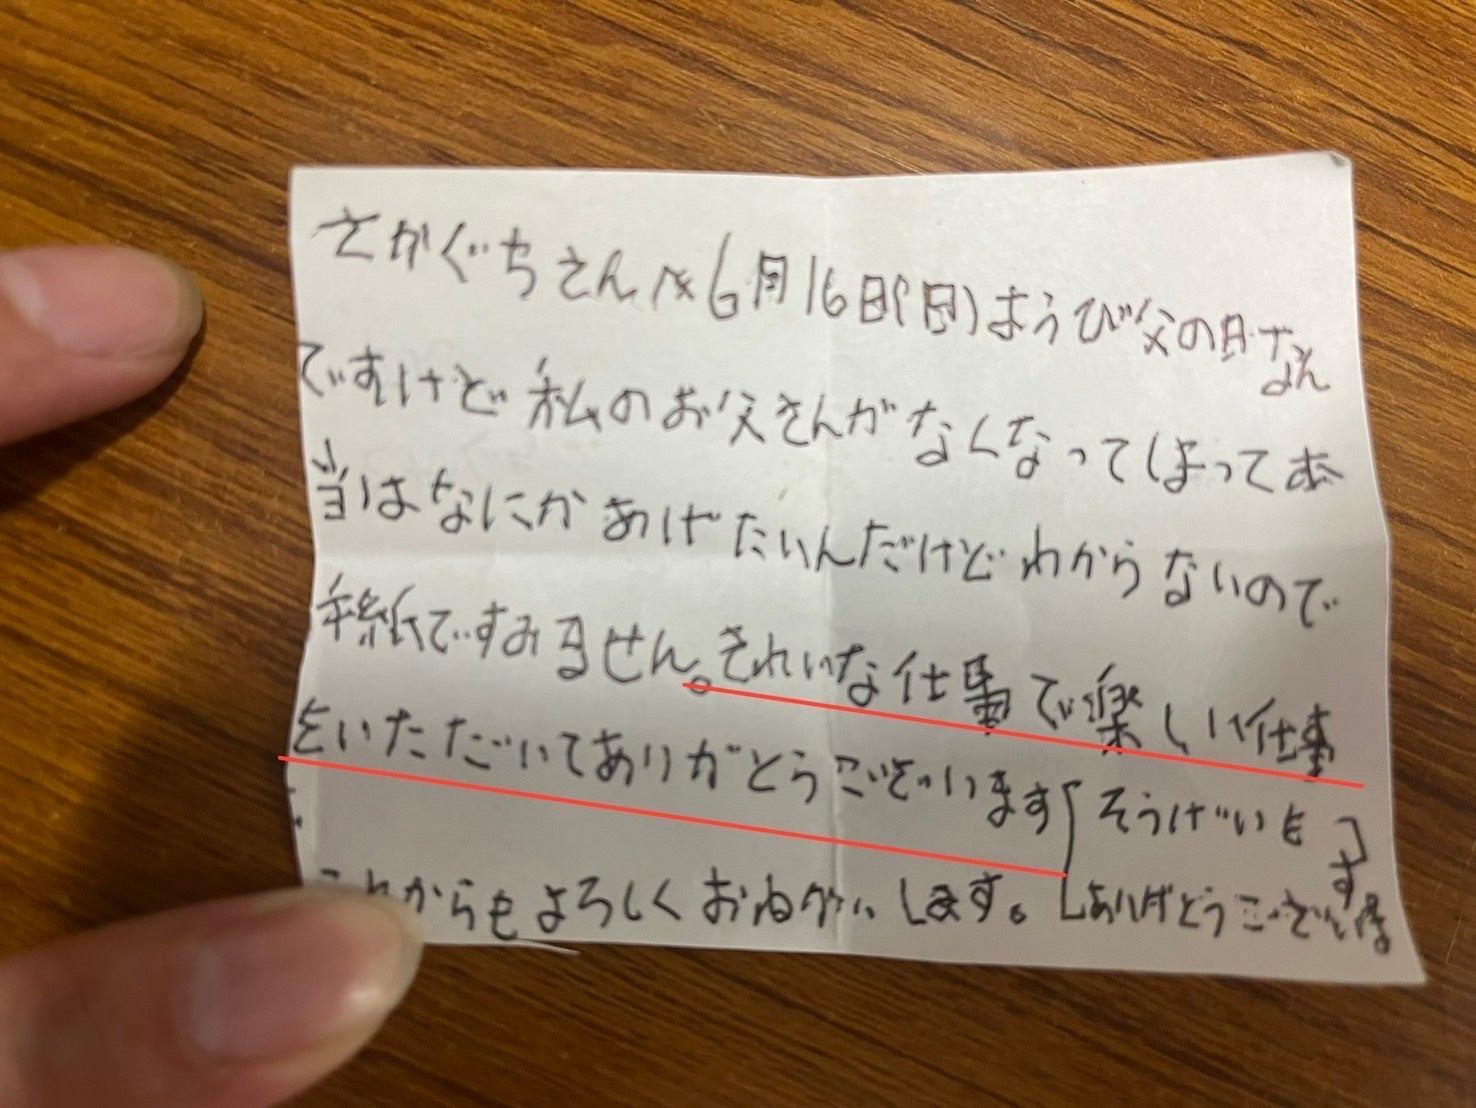 さかぐちさんへ6月16日(日)ようび父の日なん
ですけど私のお父さんがなくなってしまって本
当はなにかあげたいんだけどわからないので
手紙ですみません。きれいな仕事で楽しい仕事
をいただいてありがとうございます「そうげいも
これからもよろしくおねがいします。ありがとうございます」